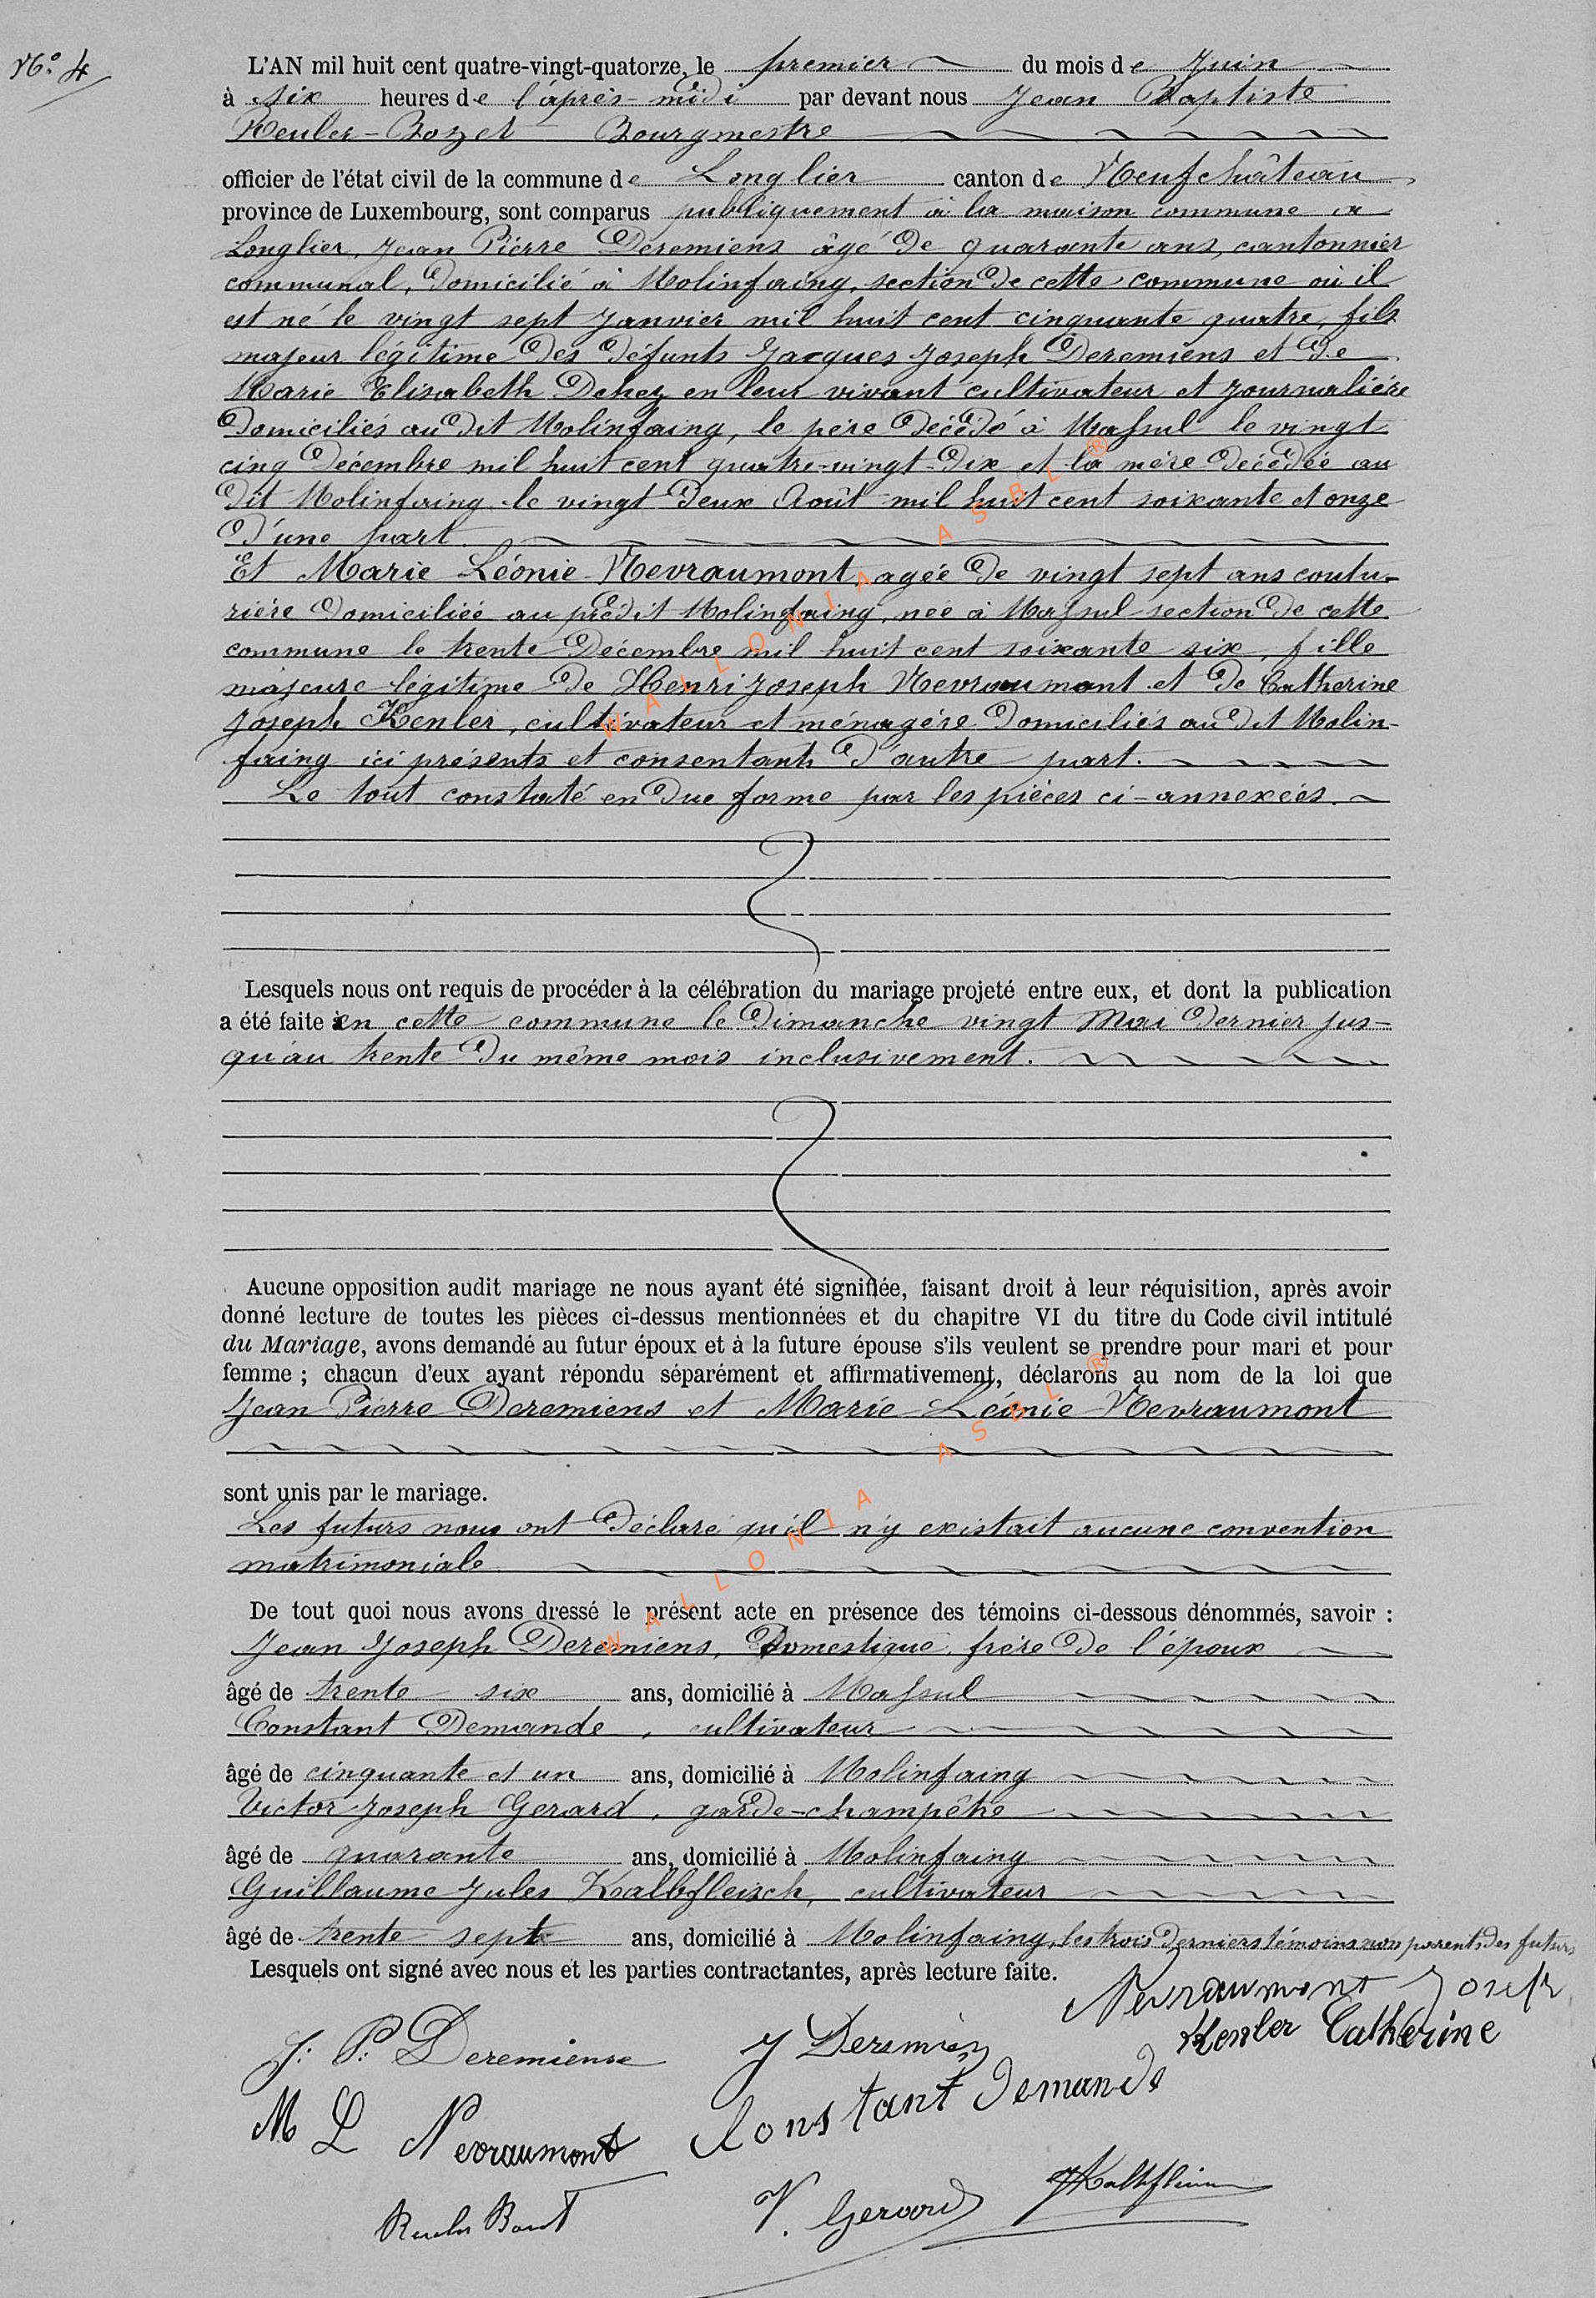 N.º 4
L'AN mil huit cent quatre-vingt-quatorze, le premier du mois de Juin
à six heures de l'après-midi par devant nous Jean Baptiste
Reuler-Bozet Bourgmestre
officier de l'état civil de la commune de Longlier canton de Neufchâteau
province de Luxembourg, sont comparus publiquement à la maison commune a
Longlier, Jean Pierre Deremiens âgé de quarante ans, cantonnier
communal, domicilié à Molinfaing, section de cette commune où il
est né le vingt sept Janvier mil huit cent cinquante quatre, fils
majeur légitime des défunts Jacques Joseph Deremiens et de
Marie Elisabeth Dehez en leur vivant cultivateur et journalière
domiciliés au dit Molinfaing, le père décédé à Massul le vingt
cinq Décembre mil huit cent quatre-vingt-dix et la mère décédée au
dit Molinfaing le vingt deux Août mil huit cent soixante et onze
d'une part.
Et Marie Léonie Nevraumont, agée de vingt sept ans coutu-
rière domiciliée au prédit Molinfaing, née à Massul section de cette
commune le trente Décembre mil huit cent soixante six, fille
majeure légitime de Henri Joseph Nevraumont et de Catherine
Joseph Kenler, cultivateur et ménagère domiciliés au dit Molin-
faing ici présents et consentants d'autre part.
Le tout constaté en due forme par les pièces ci-annexées.
Lesquels nous ont requis de procéder à la célébration du mariage projeté entre eux, et dont la publication
a été faite en cette commune le Dimanche vingt Mai dernier jus-
qu'au trente du même mois inclusivement.
Aucune opposition audit mariage ne nous ayant été signifiée, faisant droit à leur réquisition, après avoir
donné lecture de toutes les pièces ci-dessus mentionnées et du chapitre VI du titre du Code civil intitulé
du Mariage, avons demandé au futur époux et à la future épouse s'ils veulent se prendre pour mari et pour
femme ; chacun d'eux ayant répondu séparément et affirmativement, déclarons au nom de la loi que
Jean Pierre Deremiens et Marie Léonie Nevraumont
sont unis par le mariage.
Les futurs nous ont déclaré qu'il n'y existait aucune convention
matrimoniale
De tout quoi nous avons dressé le présent acte en présence des témoins ci-dessous dénommés, savoir :
Jean Joseph Deremiens, Domestique, frère de l'époux
âgé de trente six ans, domicilié à Massul
Constant Demande, cultivateur
âgé de cinquante et un ans, domicilié à Molinfaing
Victor Joseph Gerard, garde-champêtre
âgé de quarante ans, domicilié à Molinfaing
Guillaume Jules Kalbfleisch, cultivateur
âgé de trente sept ans, domicilié à Molinfaing, les trois derniers témoins non parents des futurs
Lesquels ont signé avec nous et les parties contractantes, après lecture faite.
Nevraumont Joseph
J: P: Deremiense J Deremiens Kenler Catherine
M L Nevraumont Constant Demande
V. Gerard JKalbfleisch
WALLONIA ASBL ®
WALLONIA ASBL ®